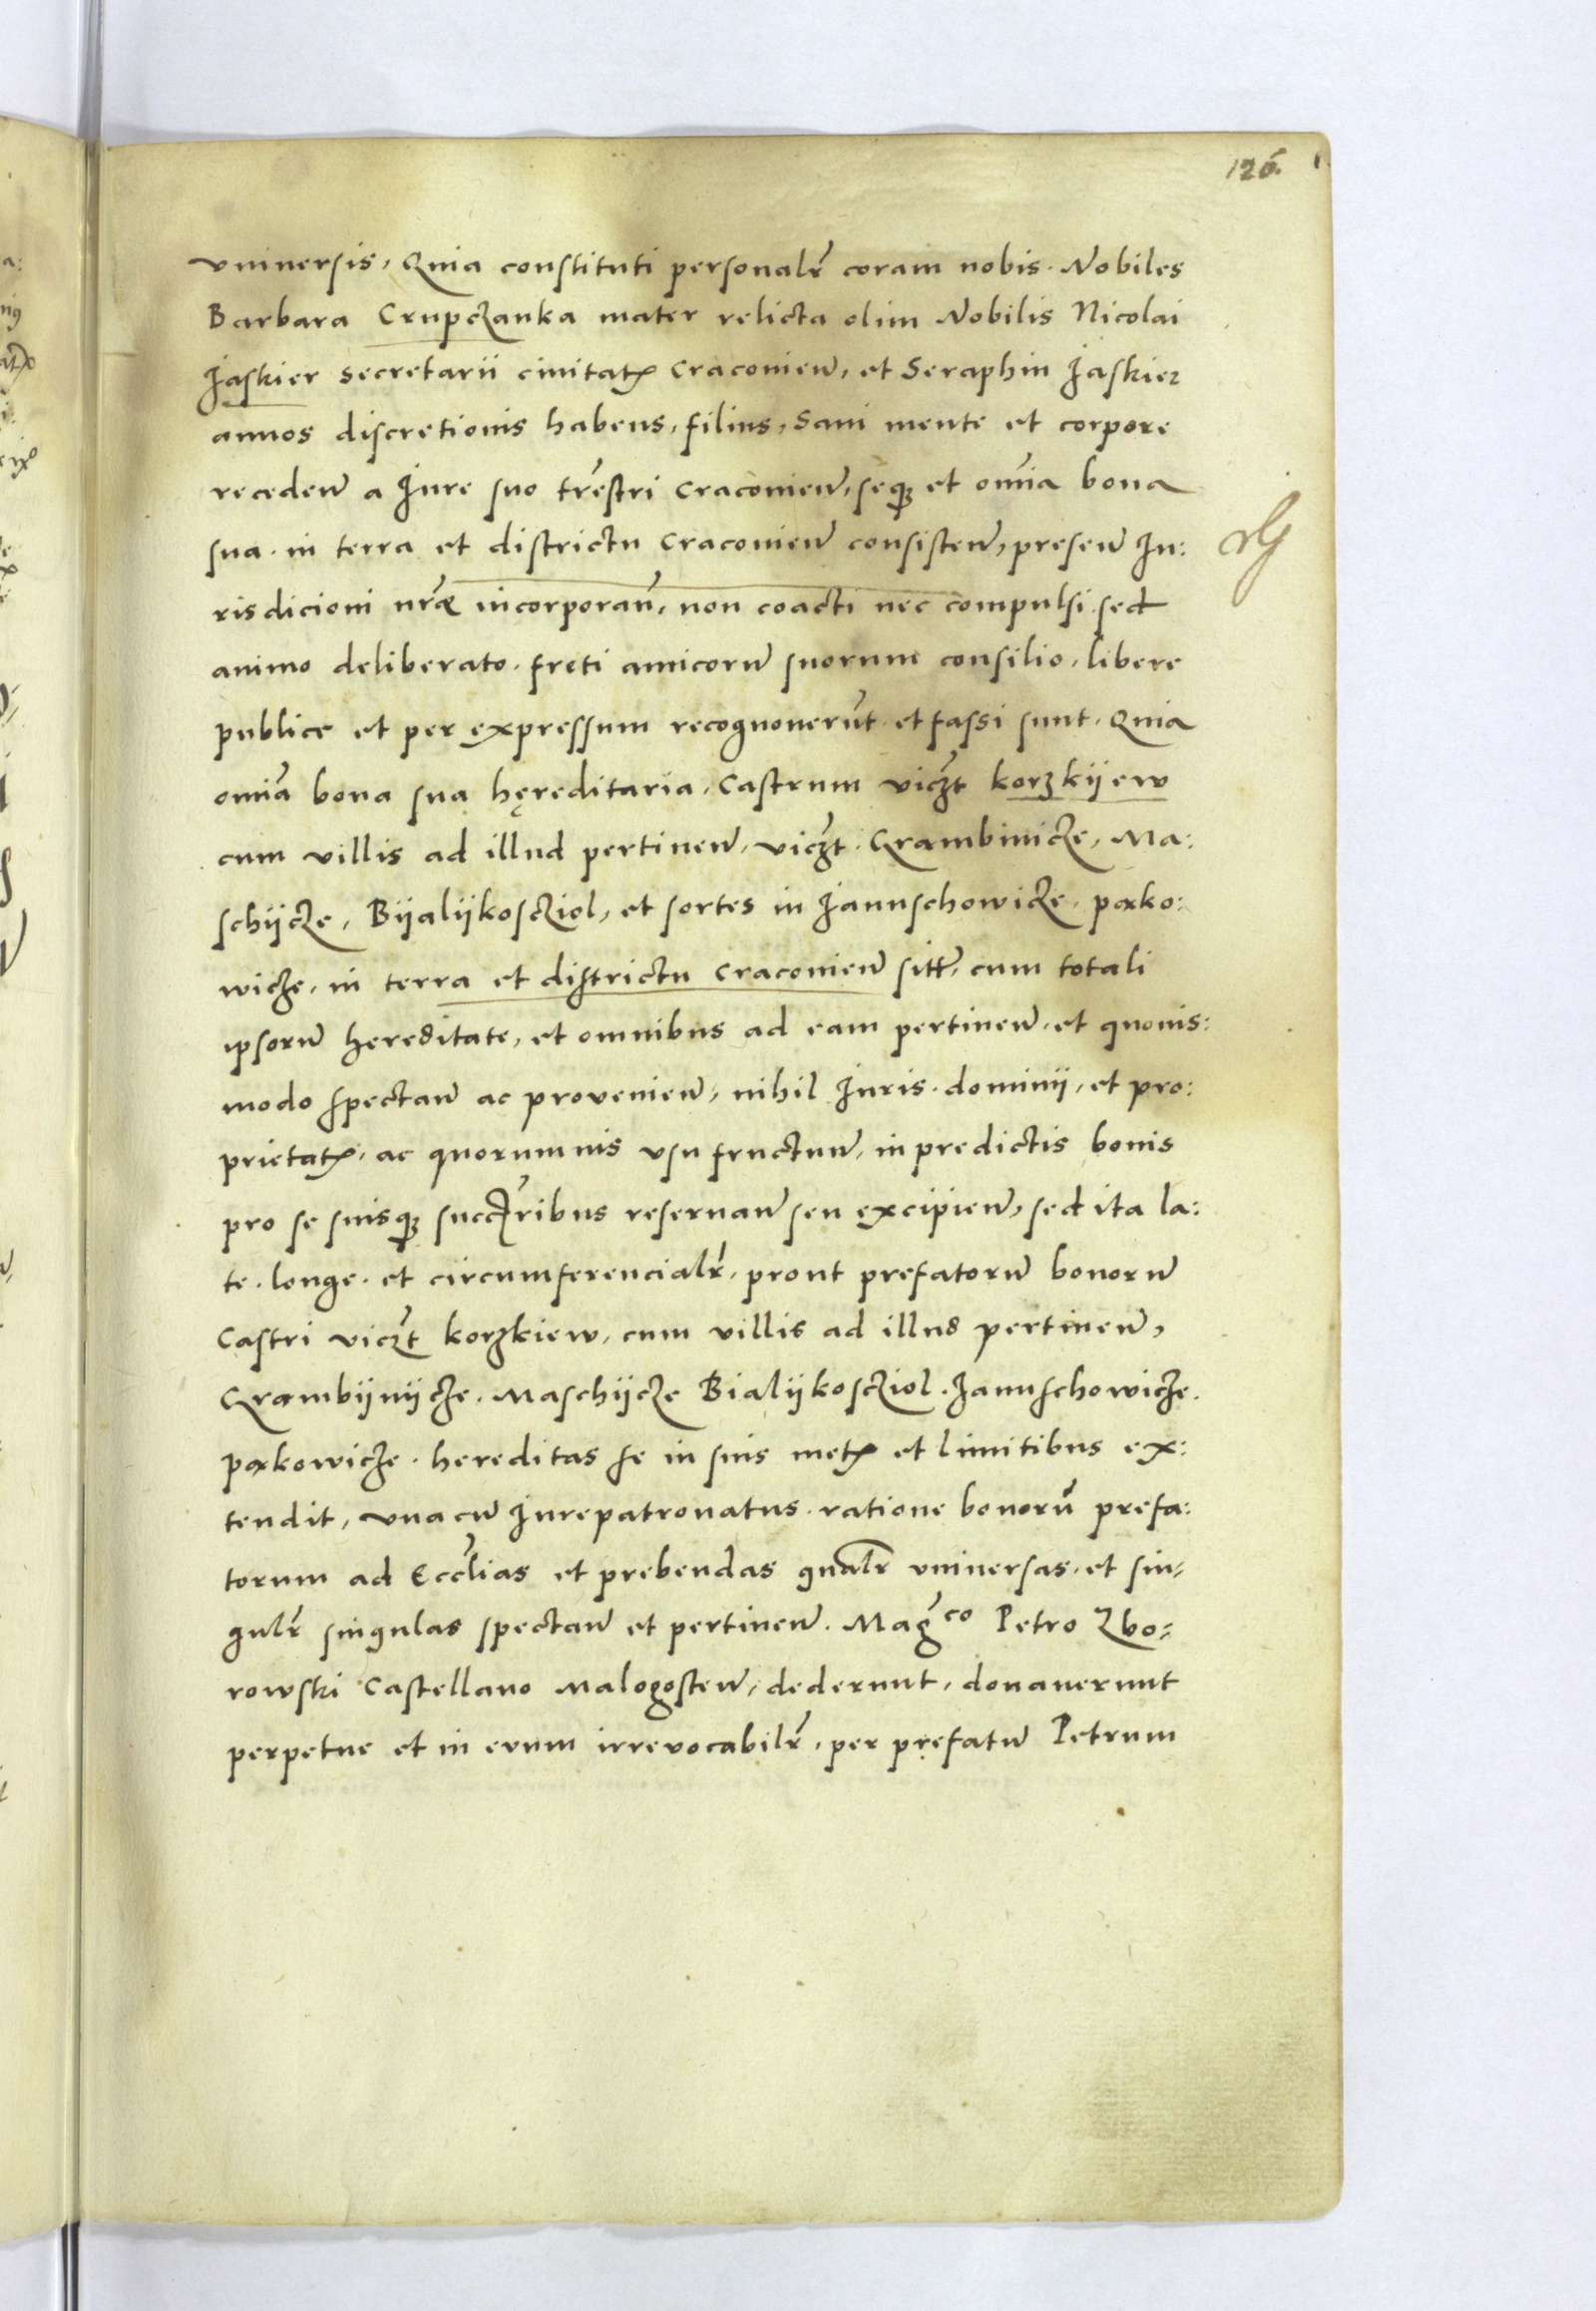 126.
vniuersis, Quia constituti personalr̃ coram nobis. Nobiles
Barbara Crupczanka mater relicta olim Nobilis Nicolai
Jaskier secretarii ciuitatꝭ Cracouieñ, et Seraphin Jaskier
annos discretionis habens, filius, Sani mente et corpore
recedeñ a Jure suo tr̃estri Cracouieñ, seqꝫ et om̃ia bona
sua in terra et districtu Cracouieñ consisteñ, preseñ Ju:
risdicioni nr̃æ incorporañ, non coacti nec compulsi sed
animo deliberato. freti amicorũ suorum consilio, libere
publice et per expressum recognouerũt et fassi sunt. Quia
om̃ia bona sua hęreditaria, Castrum viczt̃ korzkijew
cum villis ad illud pertineñ, viczt̃. Grambinicze, Ma:
schijcze, Bijalijkoscziol, et sortes in Januschowicze, pæko:
wicze, in terra et districtu Cracouieñ sitt̃, cum totali
ipsorũ hereditate, et omnibus ad eam pertineñ, et quouis:
modo spectañ ac provenieñ, nihil Juris. dominii, et pro:
prietatꝭ, ac quorumuis vsu fructuũ, in predictis bonis
pro se suisqꝫ succr̃ibus reseruañ seu excipieñ, sed ita la:
te. longe. et circumferencialr̃, prout prefatorũ bonorũ
Castri viczt̃ korzkiew, cum villis ad illud pertineñ,
Grambijnijcze. Maschijcze Bialijkoscziol. Januschowicze.
pækowicze. hereditas se in suis metꝭ et limitibus ex:
tendit, vna cũ Jurepatronatus. ratione bonorũ prefa:
torum ad Eccl̃ias et prebendas gñalr̃ vniuersas, et sin-
gulr̃ singulas spectañ et pertineñ. Mag̃co Petro Zbo-
rowski Castellano Malogosteñ, dederunt, donauerunt
perpetue et in evum irrevocabilr̃, per pręfatũ Petrum